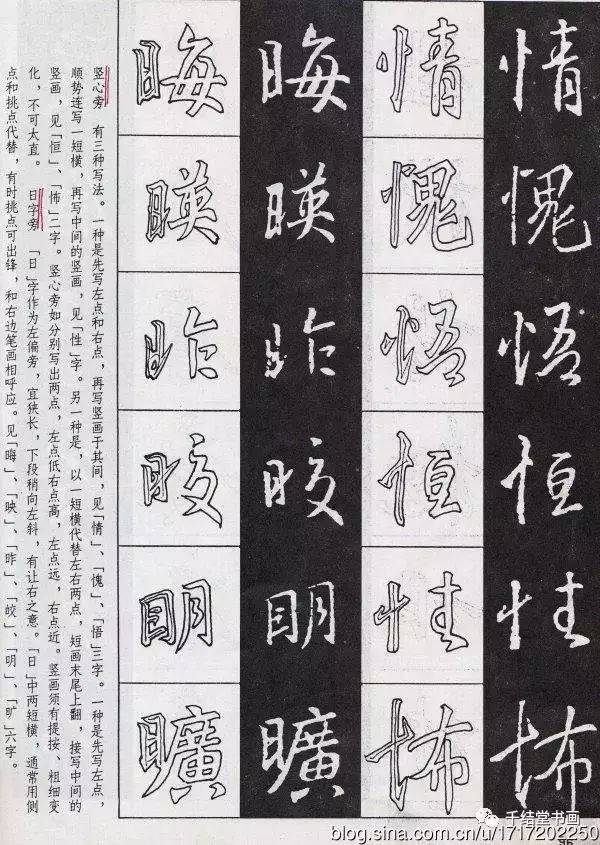 情愧悟恒性怖
情愧悟恒性怖
晦暎昨晈明曠
晦暎昨晈明曠
竖心旁　有三种写法。一种是先写左点和右点，再写竖画于其间，见「情」、「愧」、「悟」三字。一种是先写左点，
顺势连写一短横，再写中间的竖画，见「性」字。另一种是，以一短横代替左右两点，短画末尾上翻，接写中间的
竖画，见「恒」、「怖」二字。竖心旁如分别写出两点，左点低右点高，左点远，右点近。竖画须有提按、粗细变
化，不可太直。　日字旁　「日」字作为左偏旁，宜狭长，下段稍向左斜，有让右之意。「日」中两短横，通常用侧
点和挑点代替，有时挑点可出锋，和右边笔画相呼应。见「晦」、「映」、「昨」、「皎」、「明」、「旷」六字。
千结堂书画
blog.sina.com.cn/u/1717202250